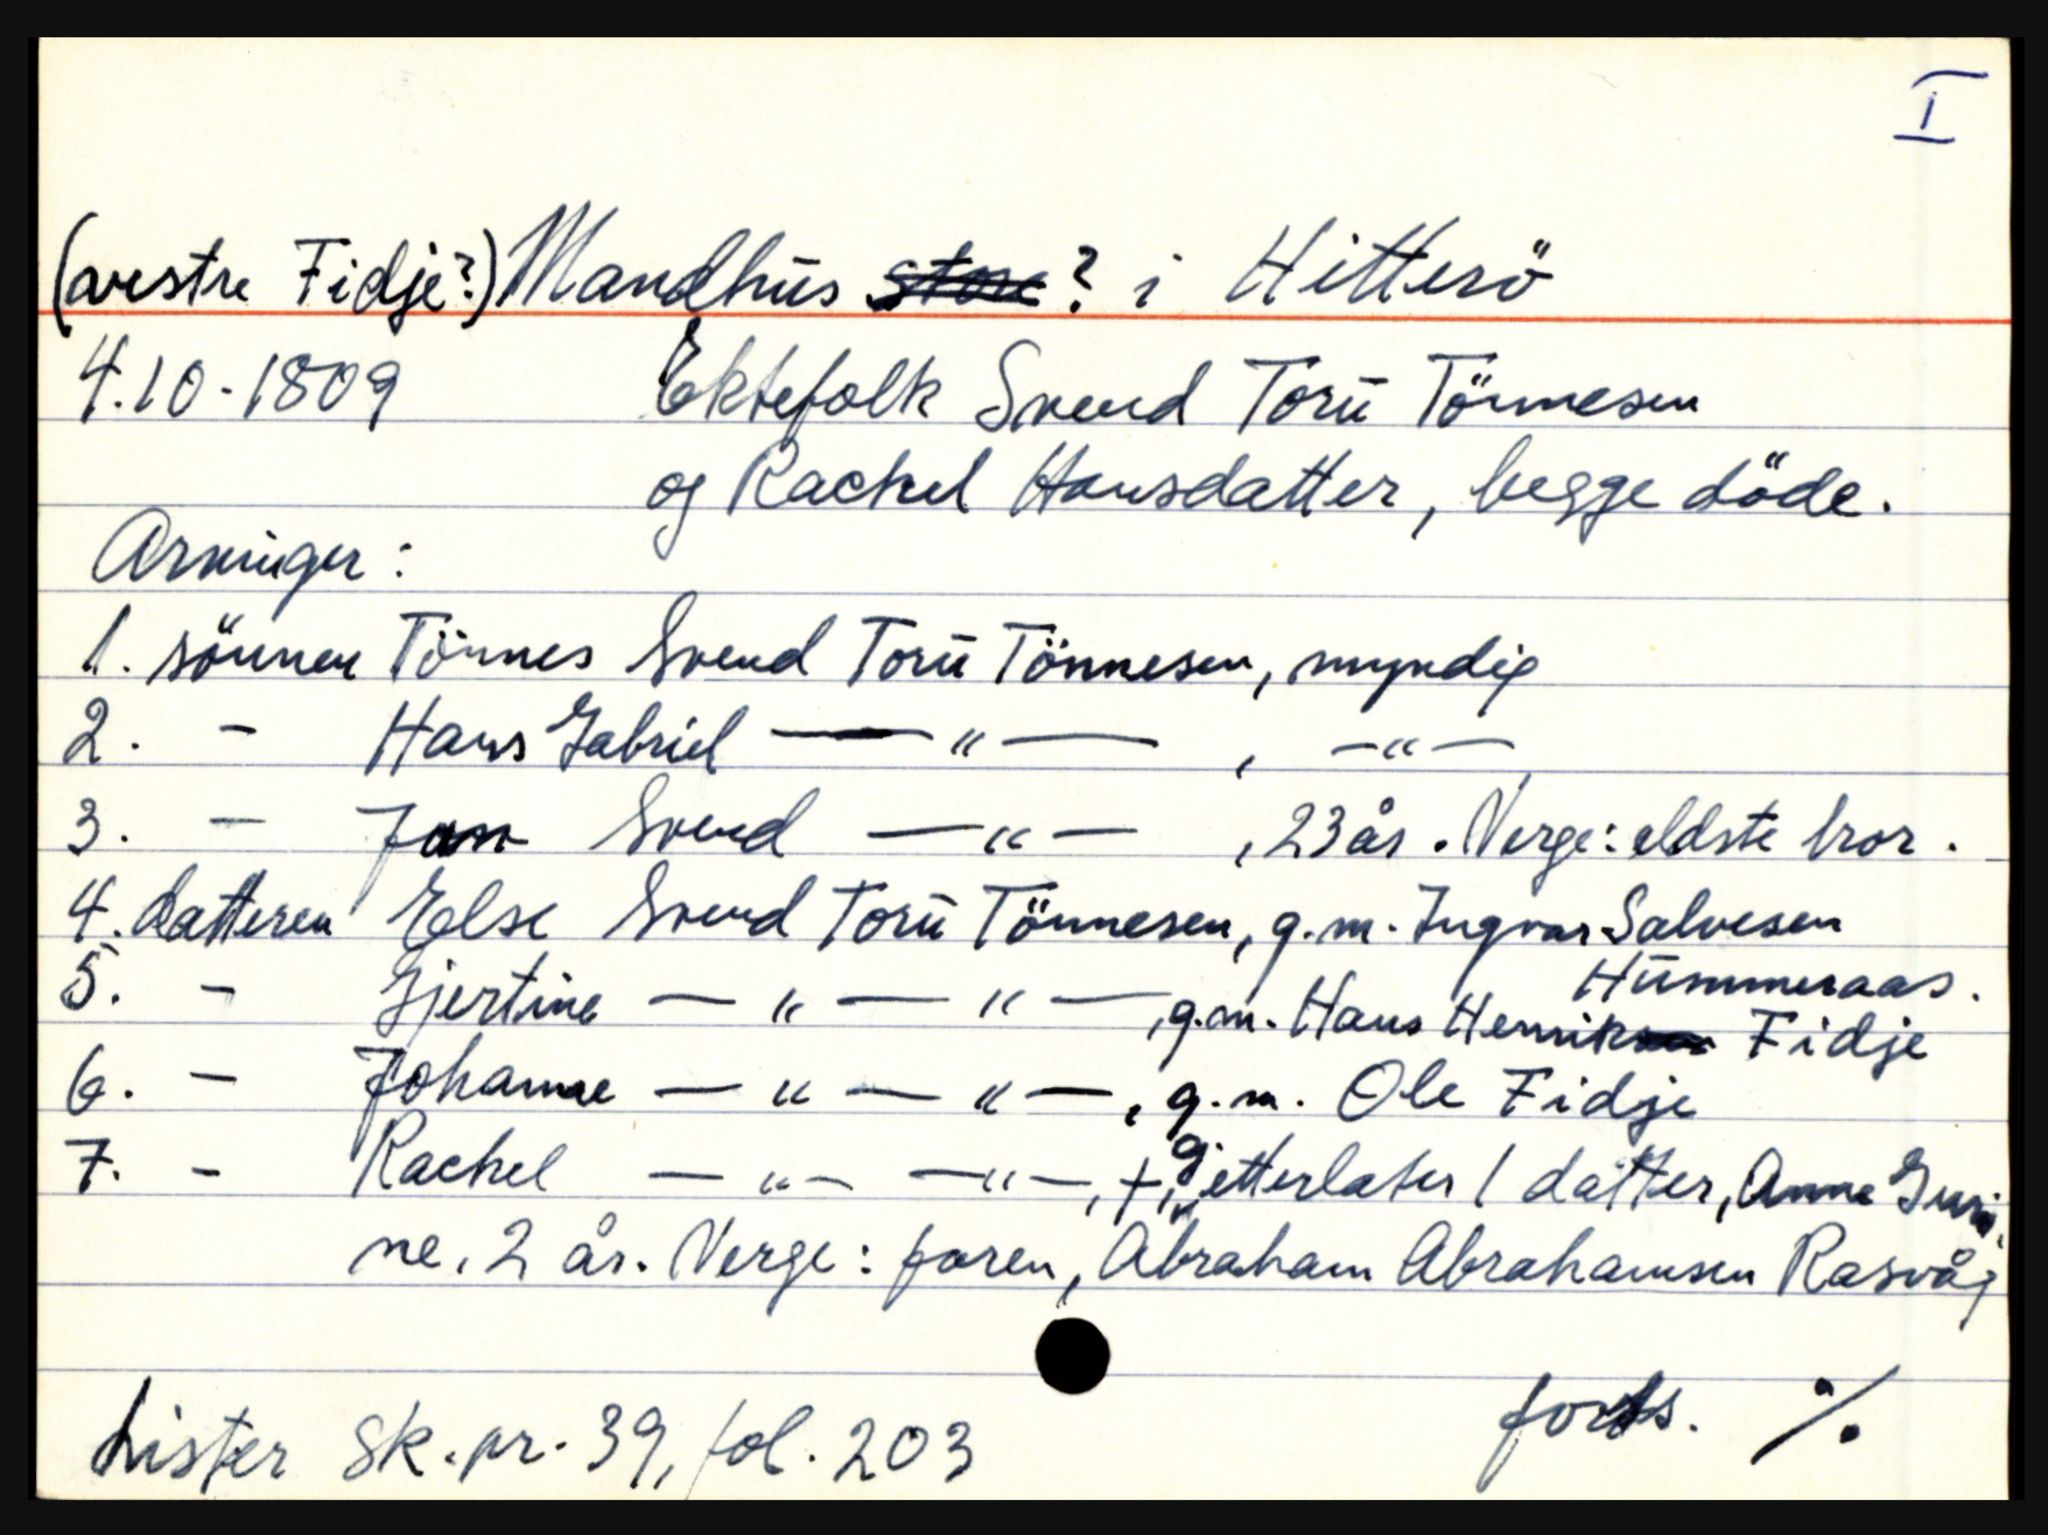 I
(vestre Fidje?) Mandhūs store? i Hitterö
4.10-1809 Ektefolk Svend Torū Tönnesen
og Rachel Hansdatter, begge döde.
Arvinger:
1. sönnen Tönnes Svend Torū Tönnesen, myndig
2. - Hans Gabriel — " — , — " —
3. - Jan Svend — " — , 23 år. Verge: eldste bror.
4. datteren Else Svend Torū Tönnesen, g.m. Ingvar Salvesen
Hūmmeraas.
5. - Gjertine — " — " — , g.m. Hans Henriksen Fidje
6. - Johanne — " — " — , g.m. Ole Fidje
7. - Rachel — " — — " — , +, etterlater 1 datter, Anne Guri-
ne, 2 år. Verge: faren, Abraham Abrahamsen Rasvåg
forts. ./.
Lister sk.pr. 39, fol. 203